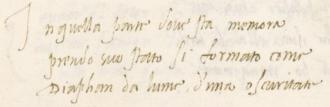 In quella parte dove sta memora
prende suo stato si formato come
Diaphan da lume d'una oscuritate